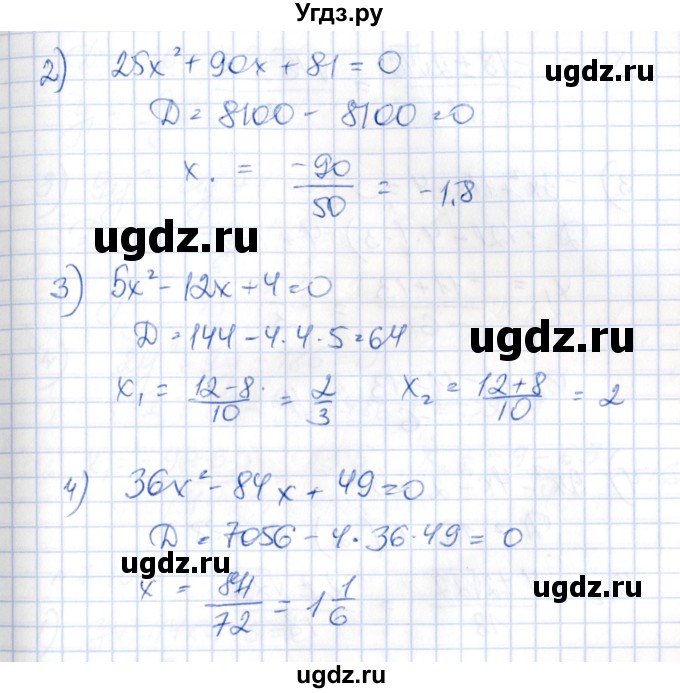 Угдз.ру
2) 25x² + 90x + 81 = 0
ugdz.ru
D = 8100 - 8100 = 0
x. = -90/50 = -1,8
ugdz.ru
3) 5x² - 12x + 4 = 0
D = 144 - 4·4·5 = 64
ugdz.ru
x₁ = 12-8/10 = 2/3 x₂ = 12+8/10 = 2
4) 36x² - 84x + 49 = 0
D = 7056 - 4·36·49 = 0
ugdz.ru
x = 84/72 = 1 1/6
ugdz.ru
ugdz.ru